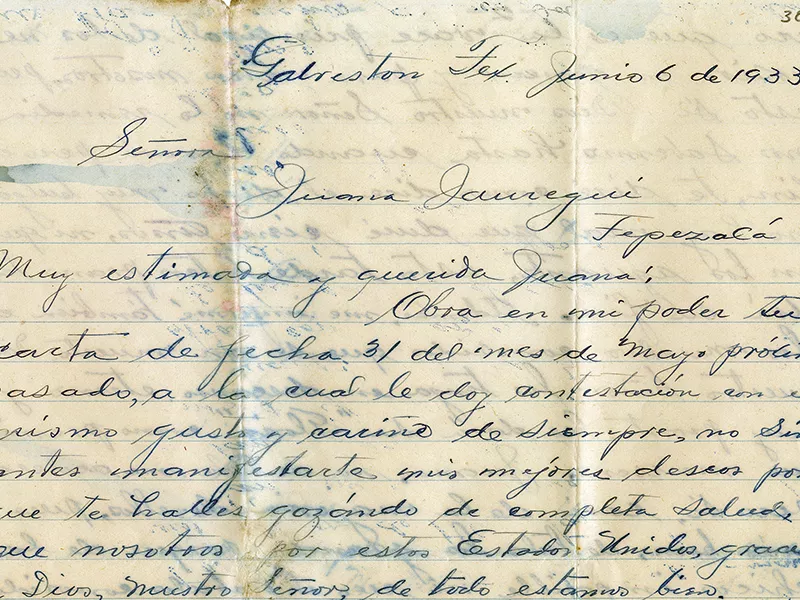 36
Galveston Tex. Junio 6 de 1933
Señora
Juana Jauregui
Tepezalá
Muy estimada y querida Juana:
Obra en mi poder tu
carta de fecha 31 del mes de Mayo próxi
pasado, a la cual le doy contestación con e
mismo gusto y cariño de siempre, no sin
antes manifestarte mis mejores deseos por
que te halles gozándo de completa salud,
que nosotros por estos Estados Unidos, graci
Dios, nuestro Señor, de todo estamos bien.